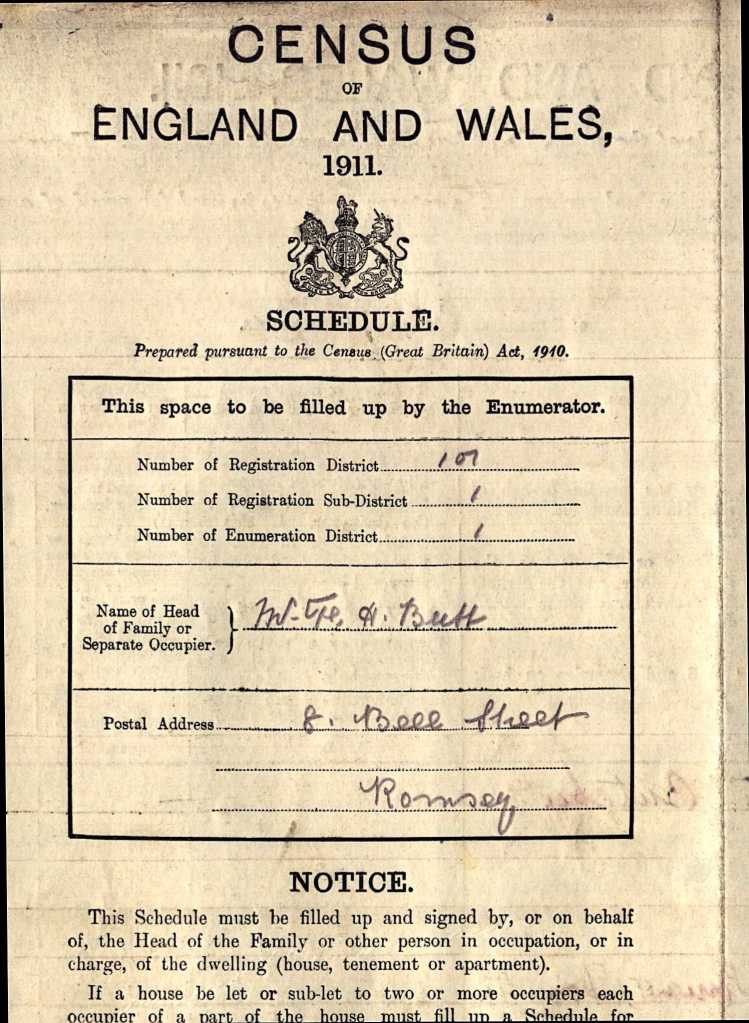 CENSUS
OF
ENGLAND AND WALES,
1911.
SCHEDULE.
Prepared pursuant to the Census (Great Britain) Act, 1910.
This space to be filled up by the Enumerator.
Number of Registration District 107
Number of Registration Sub-District 1
Number of Enumeration District 1
Name of Head
of Family or
Separate Occupier.
H. Butt
Postal Address 8. Bell Street
Romsey
NOTICE.
This Schedule must be filled up and signed by, or on behalf
of, the Head of the Family or other person in occupation, or in
charge, of the dwelling (house, tenement or apartment).
If a house be let or sub-let to two or more occupiers each
occupier of a part of the house must fill up a Schedule for